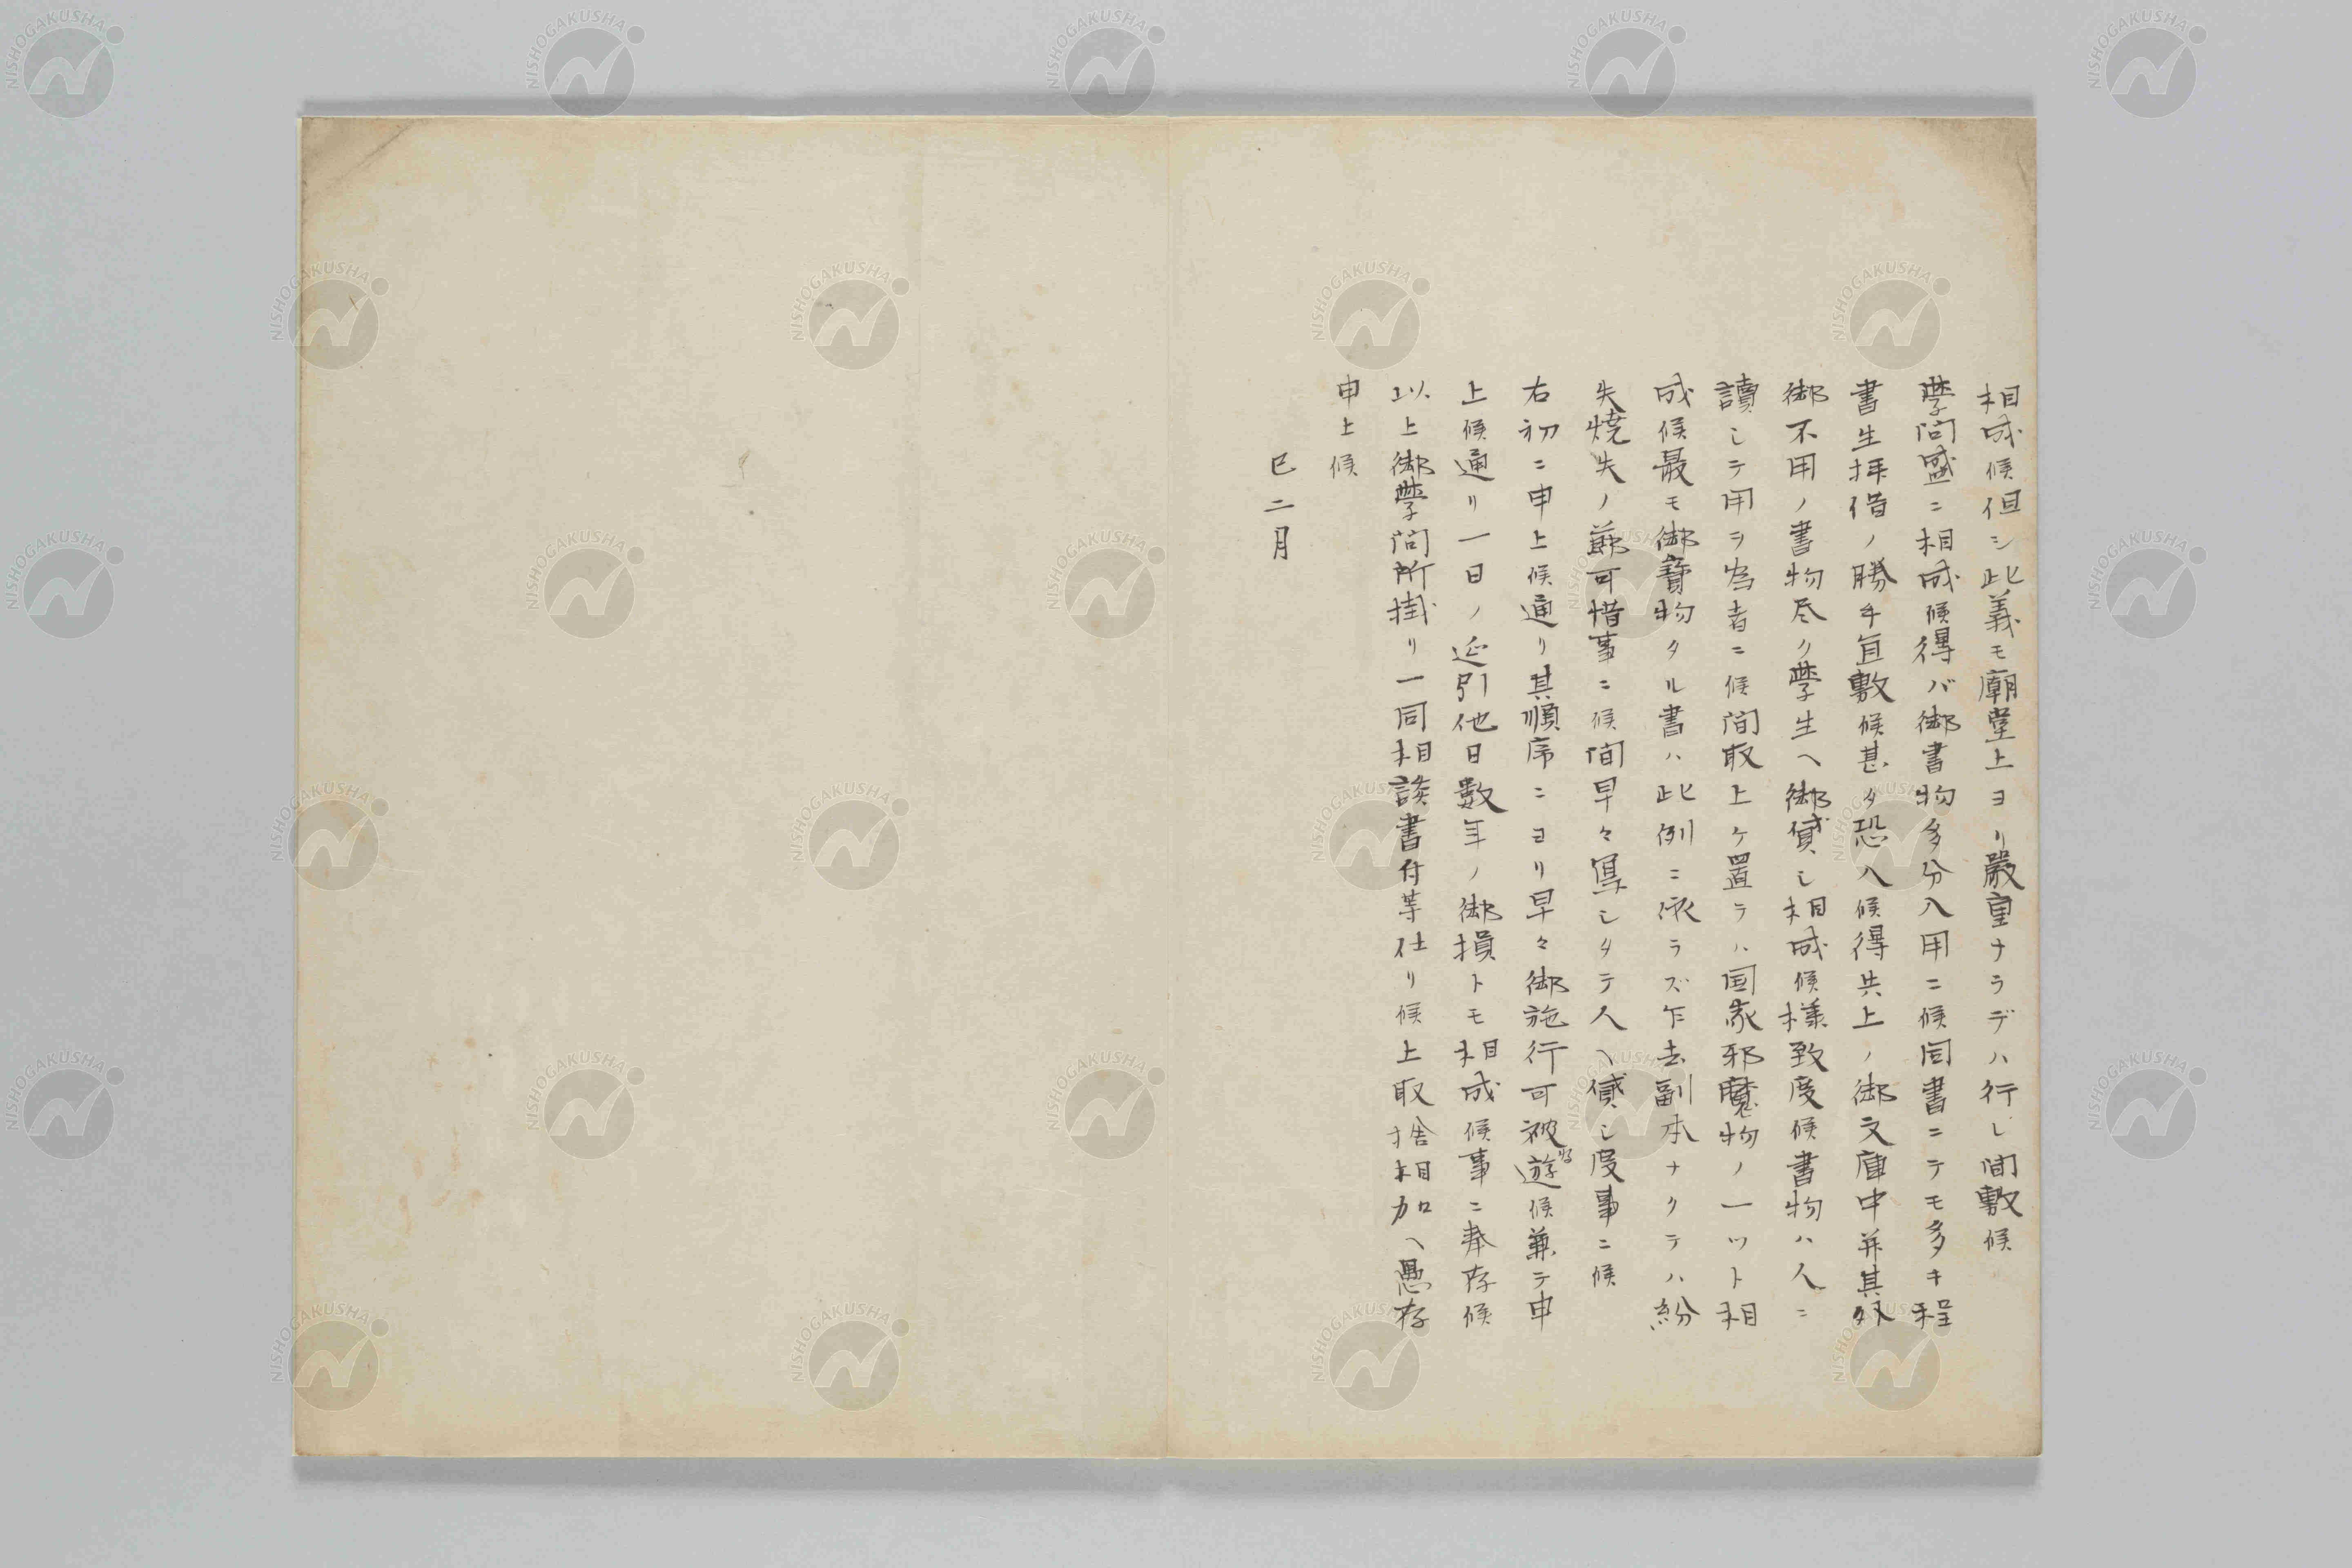 相成候但シ此義モ廟堂上ヨリ嚴重ナラデハ行レ間敷候
學問盛ニ相成候得バ御書物多分入用ニ候同書ニテモ多キ程
書生拝借ノ勝手宜敷候甚タ恐入候得共上ノ御文庫中并其外
御不用ノ書物尽ク學生ヘ御貸シ相成候様致度候書物ハ人ニ
讀シテ用ヲ為者ニ候間取上ケ置ラハ国家邪魔物ノ一ツト相
成候最モ御寶物タル書ハ此例ニ依ラズ乍去副本ナクテハ紛
失焼失ノ節可惜事ニ候間早々冩シタテ人ヘ貸シ度事ニ候
右初ニ申上候通リ其順序ニヨリ早々御施行可被遊候兼テ申
上候通リ一日ノ延引他日數年ノ御損トモ相成候事ニ奉存候
以上御學問所掛リ一同相談書付等仕リ候上取捨相加ヘ愚存
申上候
巳二月
NISHOGAKUSHA